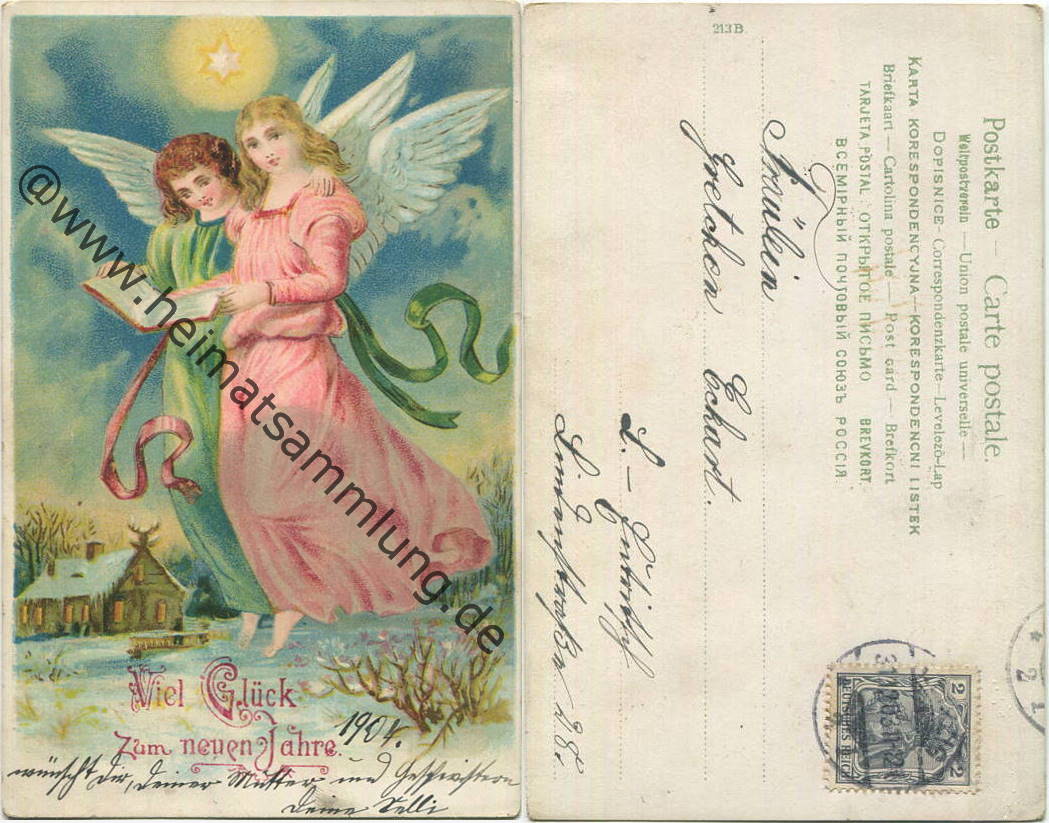 @www.heimatsammlung.de
Viel Glück
Zum neuen Jahre. 1904.
wünscht dir, deiner Mutter und Geschwistern
Deine Selli
213B
Postkarte — Carte postale.
Weltpostverein — Union postale universelle —
DOPISNICE — Correspondenzkarte — Levelezö-Lap
KARTA KORESPONDENCYJNA — KORESPONDENCNI LISTEK
Briefkaart — Cartolina postale — Post card — Brefkort
TARJETA POSTAL : ОТКРЫТОЕ ПИСЬМО BREVKORT.
ВСЕМІРНЫЙ ПОЧТОВЫЙ СОЮЗЪ РОССІЯ.
Fräulein
Gretchen Eckart.
L. – Eutritzsch
28.
2
2
DEUTSCHES REICH